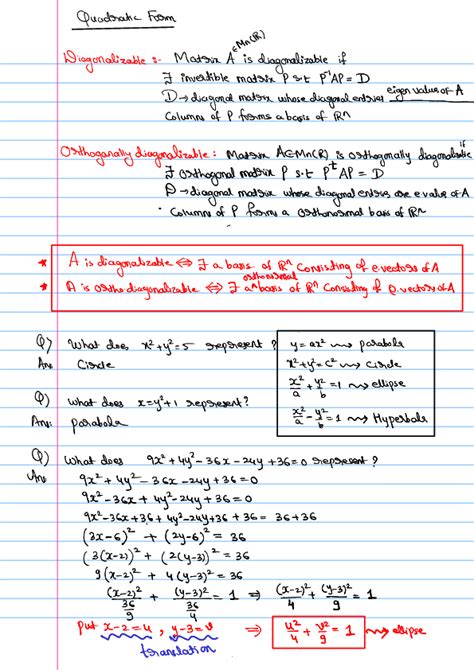 Quadratic Form
Diagonalizable :- Matrix A ∈Mn(R) is diagonalizable if
∃ invertible matrix P s.t P⁻¹AP = D
D → diagonal matrix whose diagonal entries eigen value of A
Columns of P forms a basis of Rⁿ
Orthogonally diagonalizable : Matrix A∈Mn(R) is orthogonally diagonalizable if
∃ orthogonal matrix P s.t PᵗAP = D
D → diagonal matrix whose diagonal entries are e value of A
• Columns of P forms a orthonormal basis of Rⁿ
* A is diagonalizable ⇔ ∃ a basis of Rⁿ consisting of e.vectors of A
* A is ortho diagonalizable ⇔ ∃ a ^ orthonormal basis of Rⁿ consisting of e.vectors of A
Q) What does x²+y²=5 represent ?
Ans Circle
Q) What does x=y²+1 represent?
Ans: parabola
y = ax² ⇝ parabola
x²+y²=c² ⇝ circle
x²/a + y²/b = 1 ⇝ ellipse
x²/a - y²/b = 1 ⇝ Hyperbola
Q) What does 9x²+4y²-36x-24y+36=0 represent?
Ans 9x²+4y²-36x-24y+36=0
9x²-36x+4y²-24y+36=0
9x²-36x+36+4y²-24y+36+36=36+36
(3x-6)² + (2y-6)² = 36
(3(x-2))² + (2(y-3))² = 36
9(x-2)² + 4(y-3)² = 36
(x-2)²/(36/9) + (y-3)²/(36/4) = 1 ⇒ (x-2)²/4 + (y-3)²/9 = 1
put x-2=u, y-3=v ⇒ u²/4 + v²/9 = 1 ⇝ ellipse
translation